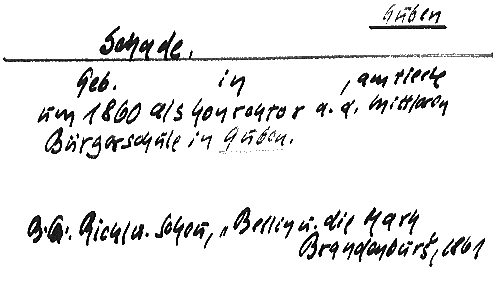 Guben
Schade.
Geb. in , amtierte
um 1860 als Konrektor a. d. mittleren
Bürgerschule in Guben.
B.G. Riehl u. Scheu, „Berlin u. die Mark
Brandenburg", 1861